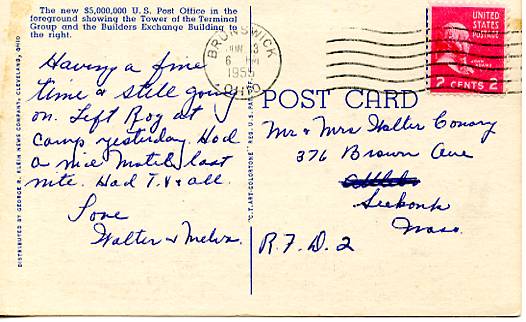 The new $5,000,000 U.S. Post Office in the
foreground showing the Tower of the Terminal
Group and the Builders Exchange Building to
the right.
Having a fine
time & still going
on. Left Roy at
camp yesterday. Had
a nice Motel last
nite. Had T.V & all.
Love
Walter & Melva.
DISTRIBUTED BY GEORGE R. KLEIN NEWS COMPANY, CLEVELAND, OHIO
BRUNSWICK
3
6 PM
1955
OHIO
UNITED
STATES
POSTAGE
JOHN ADAMS
2 CENTS 2
POST CARD
Mr & Mrs Walter Conary
376 Brown Ave
Seekonk
Mass.
R.F.D. 2